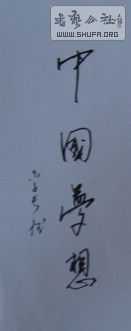 书艺公社
WWW.SHUFA.ORG
中國夢想